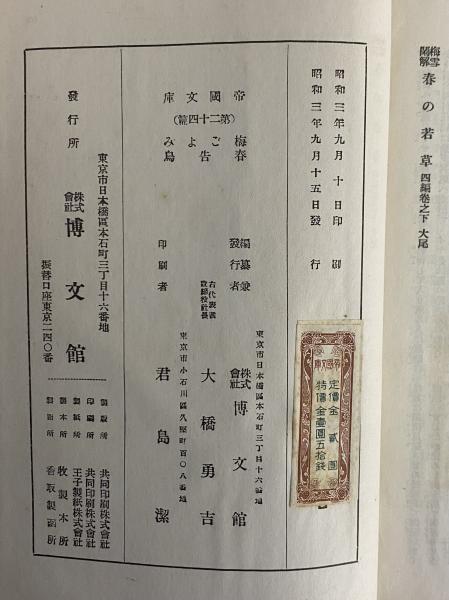 梅雪
開解 春の若草 四編卷之下 大尾
昭和三年九月十日印刷
昭和三年九月十五日發行
定價金貳圓
特價金壹圓五拾錢
帝國文庫
(第二十四篇)
梅ごよみ
春告鳥
編纂兼
發行者
東京市日本橋區本石町三丁目十六番地
株式
會社 博文館
大橋勇吉
印刷者
東京市小石川區久堅町百〇八番地
君島潔
發行所
東京市日本橋區本石町三丁目十六番地
株式
會社 博文館
振替口座東京二四〇番
印刷所 共同印刷株式會社
製紙所 王子製紙株式會社
製本所 牧製本所
製函所 香取製函所